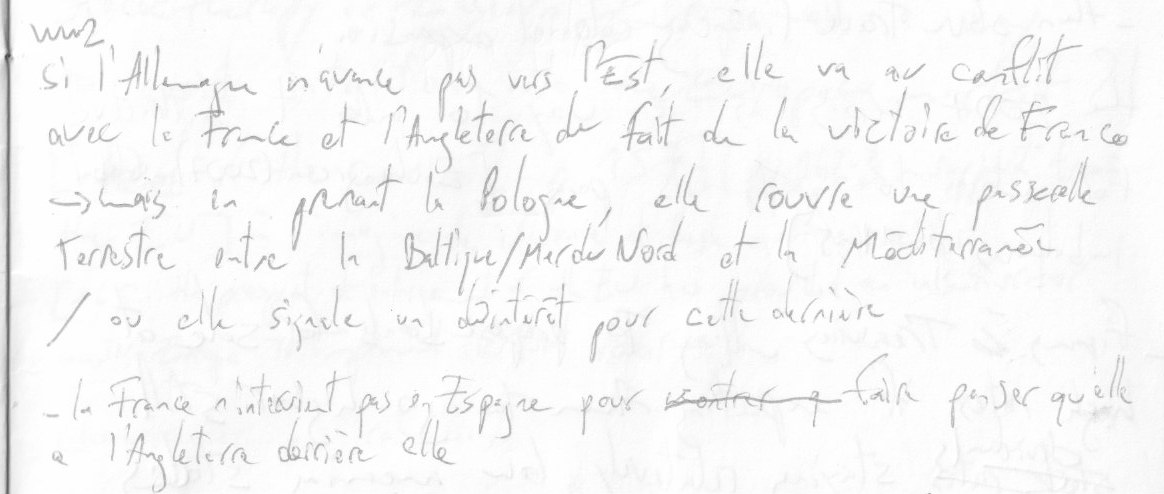 ww2
si l'Allemagne n'avance pas vers l'Est, elle va au conflit
avec la France et l'Angleterre du fait de la victoire de Franco
→ mais en prenant la Pologne, elle rouvre une passerelle
terrestre entre la Baltique/Mer du Nord et la Méditerranée
/ ou elle signale un désintérêt pour cette dernière
- la France n'intervient pas en Espagne pour montrer q faire penser qu'elle
a l'Angleterre derrière elle